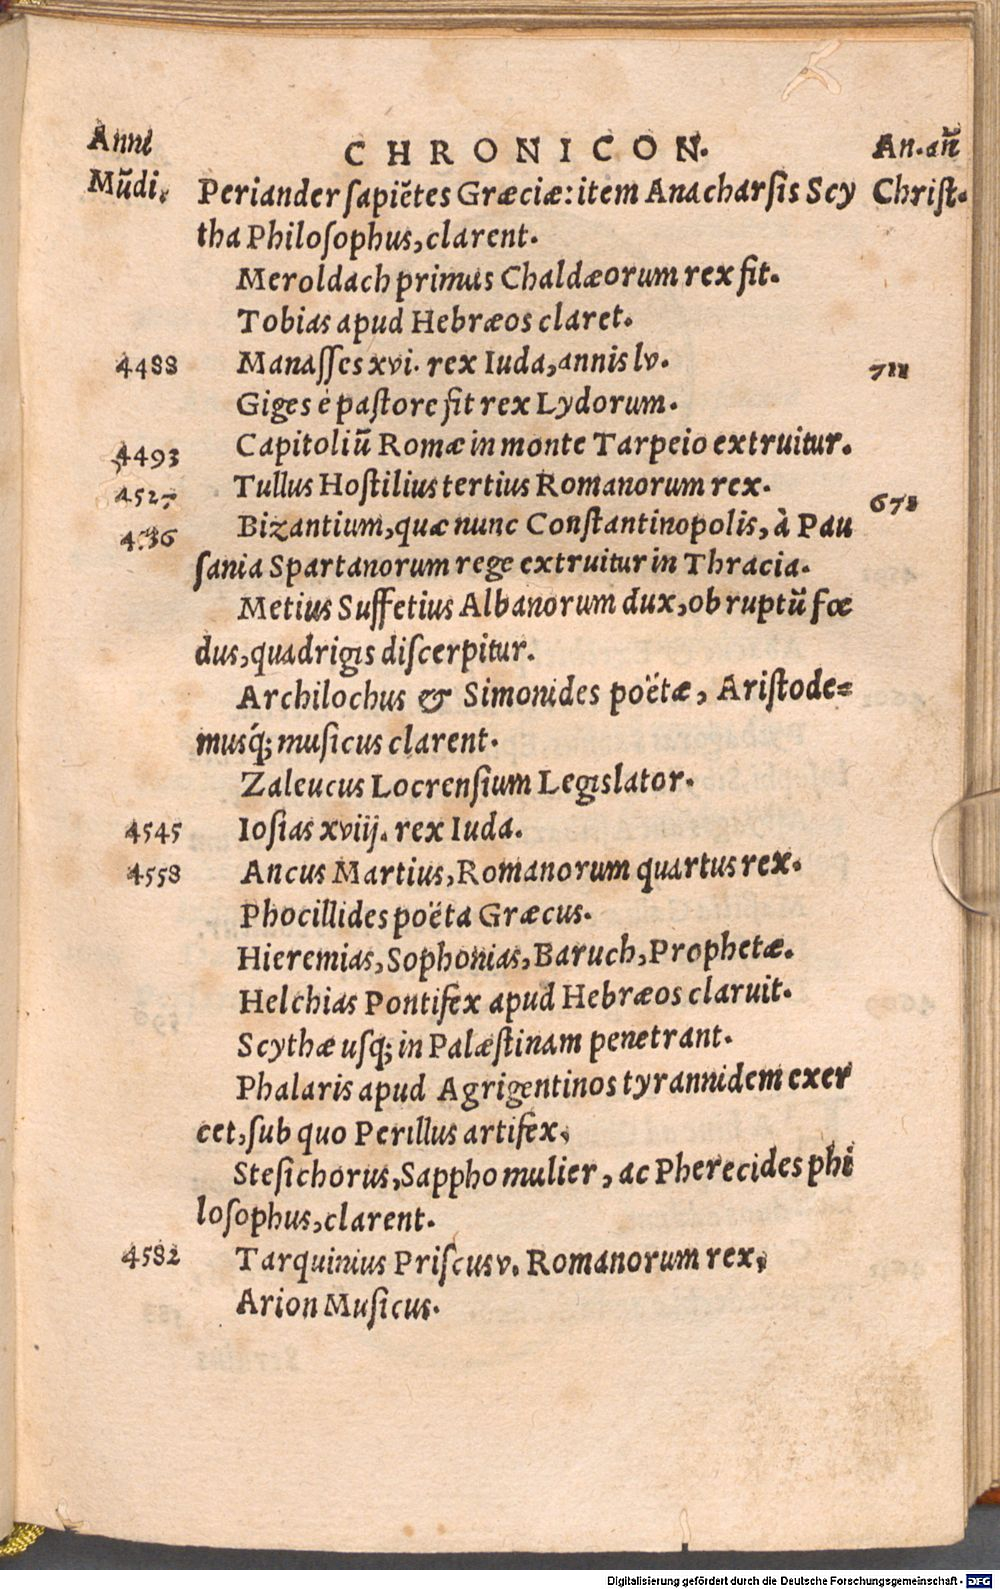 Anni CHRONICON. An. añ
Mũdi. Periander ſapiẽtes Græciæ: item Anacharſis Scy Chriſt.
tha Philoſophus, clarent.
Meroldach primus Chaldæorum rex fit.
Tobias apud Hebræos claret.
4488 Manaſſes xvi. rex Iuda, annis lv. 711
Giges è paſtore fit rex Lydorum.
4493 Capitoliũ Romæ in monte Tarpeio extruitur.
4527 Tullus Hoſtilius tertius Romanorum rex. 673
4536 Bizantium, quæ nunc Conſtantinopolis, à Pau
ſania Spartanorum rege extruitur in Thracia.
Metius Suffetius Albanorum dux, ob ruptũ fœ
dus, quadrigis diſcerpitur.
Archilochus & Simonides poëtæ, Ariſtode=
musq́; muſicus clarent.
Zaleucus Locrenſium Legislator.
4545 Ioſias xviij. rex Iuda.
4558 Ancus Martius, Romanorum quartus rex.
Phocillides poëta Græcus.
Hieremias, Sophonias, Baruch, Prophetæ.
Helchias Pontifex apud Hebræos claruit.
Scythæ uſq; in Palæſtinam penetrant.
Phalaris apud Agrigentinos tyrannidem exer
cet, ſub quo Perillus artifex.
Steſichorus, Sappho mulier, ac Pherecides phi
loſophus, clarent.
4582 Tarquinius Priſcus v. Romanorum rex,
Arion Muſicus.
Digitalisierung gefördert durch die Deutsche Forschungsgemeinschaft - DFG